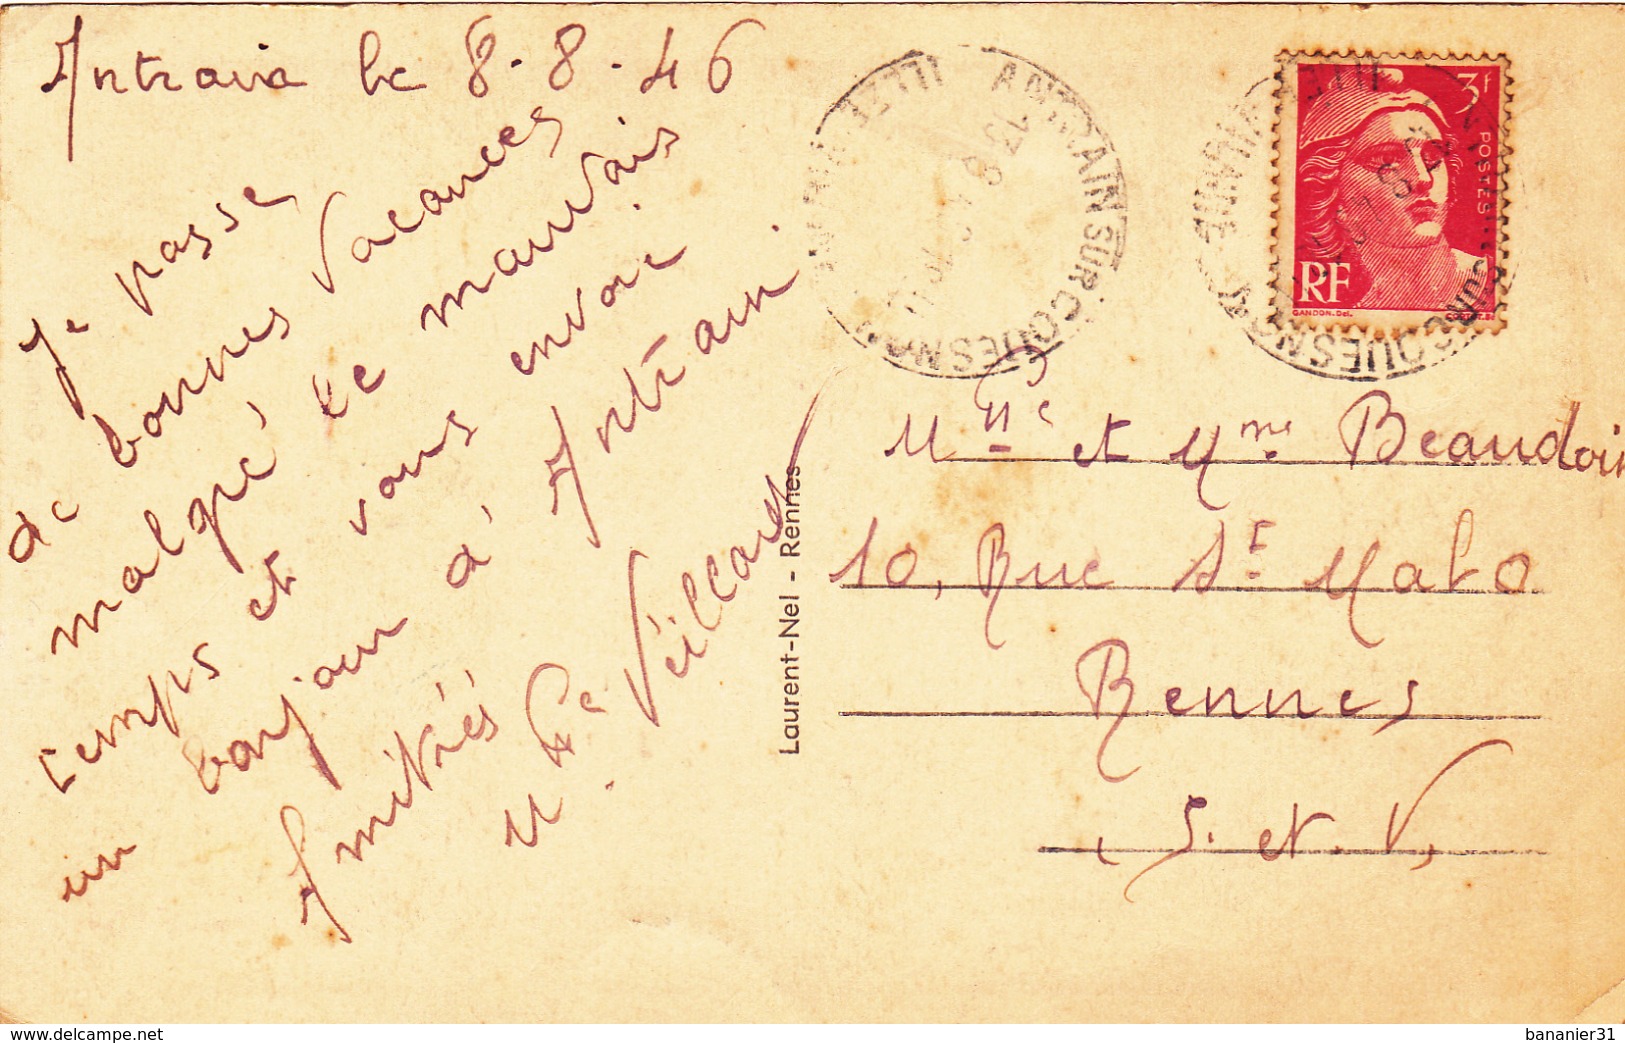 Antrain le 8.8.46
Je passe
de bonnes vacances
malgré le mauvais
temps et vous envoie
un bonjour d'Antrain.
Amitiés
M. Th. Veillard
Mlle et Mme Beaudoin
10, Rue St Malo
Rennes
(I. et. V.
Laurent-Nel - Rennes
ANTRAIN SUR COUESNON
ILLE
13 8
3f
POSTES
RF
GANDON. Del.
ILLE
VILAINE
www.delcampe.net
bananier31